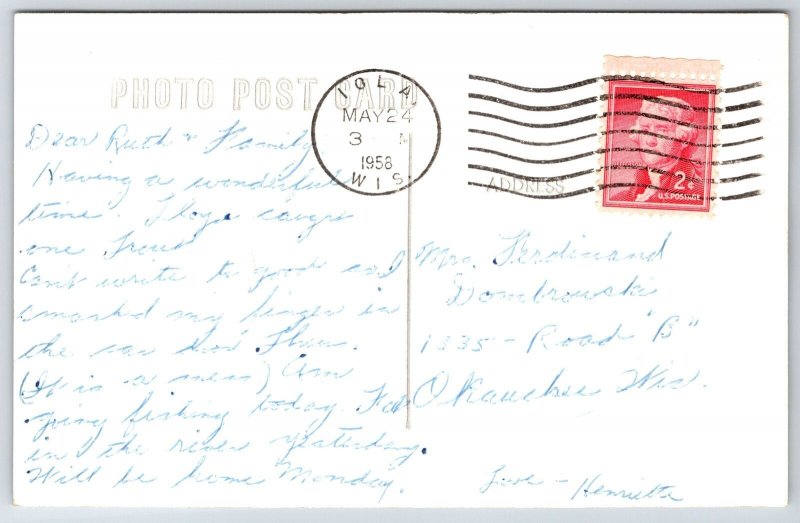 PHOTO POST CARD
IOLA
MAY 24
3 M
1958
WIS
ADDRESS
2¢
U.S. POSTAGE
Dear Ruth & Family
Having a wonderful
time. Floyd caught
one Trout
Can't write to good as I
smashed my finger in
the car door Thur.
(It is a mess) Am
going fishing today.
in the river yesterday.
Will be home Monday.
Love - Henrietta
Mrs. Ferdinand
Dombrowski
1335 - Road "B"
Okauchee Wis.